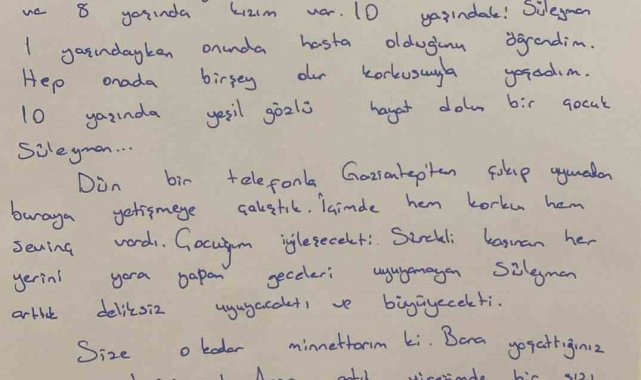 ve 8 yaşında kızım var. 10 yaşındaki Süleyman
1 yaşındayken onunda hasta olduğunu öğrendim.
Hep onada birşey olur korkusuyla yaşadım.
10 yaşında yeşil gözlü hayat dolu bir çocuk
Süleyman...
Dün bir telefonla Gaziantep'ten çıkıp uyumadan
buraya yetişmeye çalıştık. İçimde hem korku hem
sevinç vardı. Çocuğum iyileşecekti. Sürekli kaşınan her
yerini yara yapan geceleri uyuyamayan Süleyman
artık deliksiz uyuyacaktı ve büyüyecekti.
Size o kadar minnettarım ki. Bana yaşattığınız
artık yüreğimde bir sızı